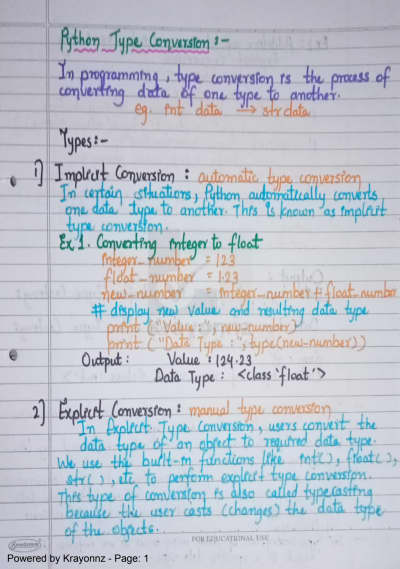 Python Type Conversion :-
In programming, type conversion is the process of
converting data of one type to another.
eg. int data → str data
Types :-
1] Implicit Conversion : automatic type conversion
In certain situations, Python automatically converts
one data type to another. This is known as implicit
type conversion.
Ex 1. Converting integer to float
integer_number = 123
float_number = 1.23
new_number = integer_number + float_number
# display new value and resulting data type
print ("Value :", new_number)
print ("Data Type :", type(new_number))
Output : Value : 124.23
Data Type : <class 'float'>
2] Explicit Conversion : manual type conversion
In Explicit Type Conversion, users convert the
data type of an object to required data type.
We use the built-in functions like int(), float(),
str(), etc to perform explicit type conversion.
This type of conversion is also called typecasting
because the user casts (changes) the data type
of the objects.
FOR EDUCATIONAL USE
Powered by Krayonnz - Page: 1